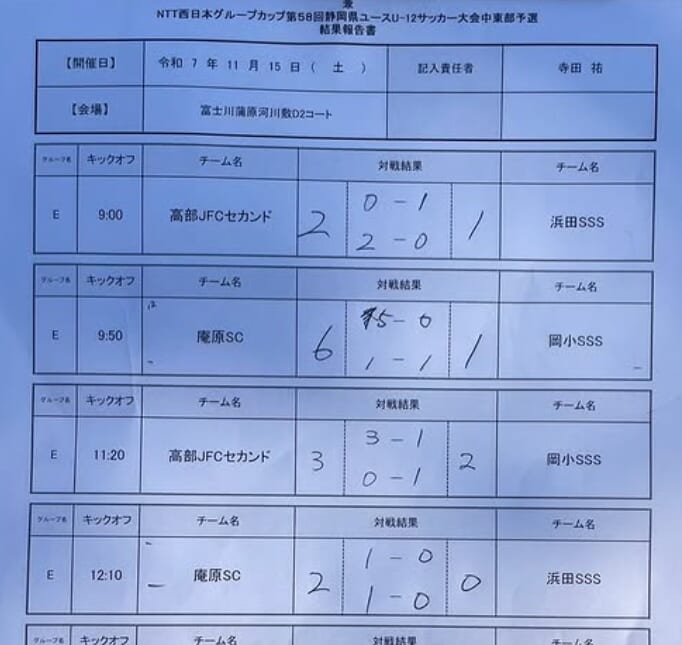 兼
NTT西日本グループカップ第58回静岡県ユースU-12サッカー大会中東部予選
結果報告書
【開催日】 令和 7 年 11 月 15 日 ( 土 ) 記入責任者 寺田 祐
【会場】 富士川蒲原河川敷D2コート
グループ名 キックオフ チーム名 対戦結果 チーム名
E 9:00 高部JFCセカンド 2 0 - 1 1 浜田SSS
2 - 0
グループ名 キックオフ チーム名 対戦結果 チーム名
E 9:50 庵原SC 6 5 - 0 1 岡小SSS
1 - 1
グループ名 キックオフ チーム名 対戦結果 チーム名
E 11:20 高部JFCセカンド 3 3 - 1 2 岡小SSS
0 - 1
グループ名 キックオフ チーム名 対戦結果 チーム名
E 12:10 庵原SC 2 1 - 0 0 浜田SSS
1 - 0
グループ名 キックオフ チーム名 対戦結果 チーム名